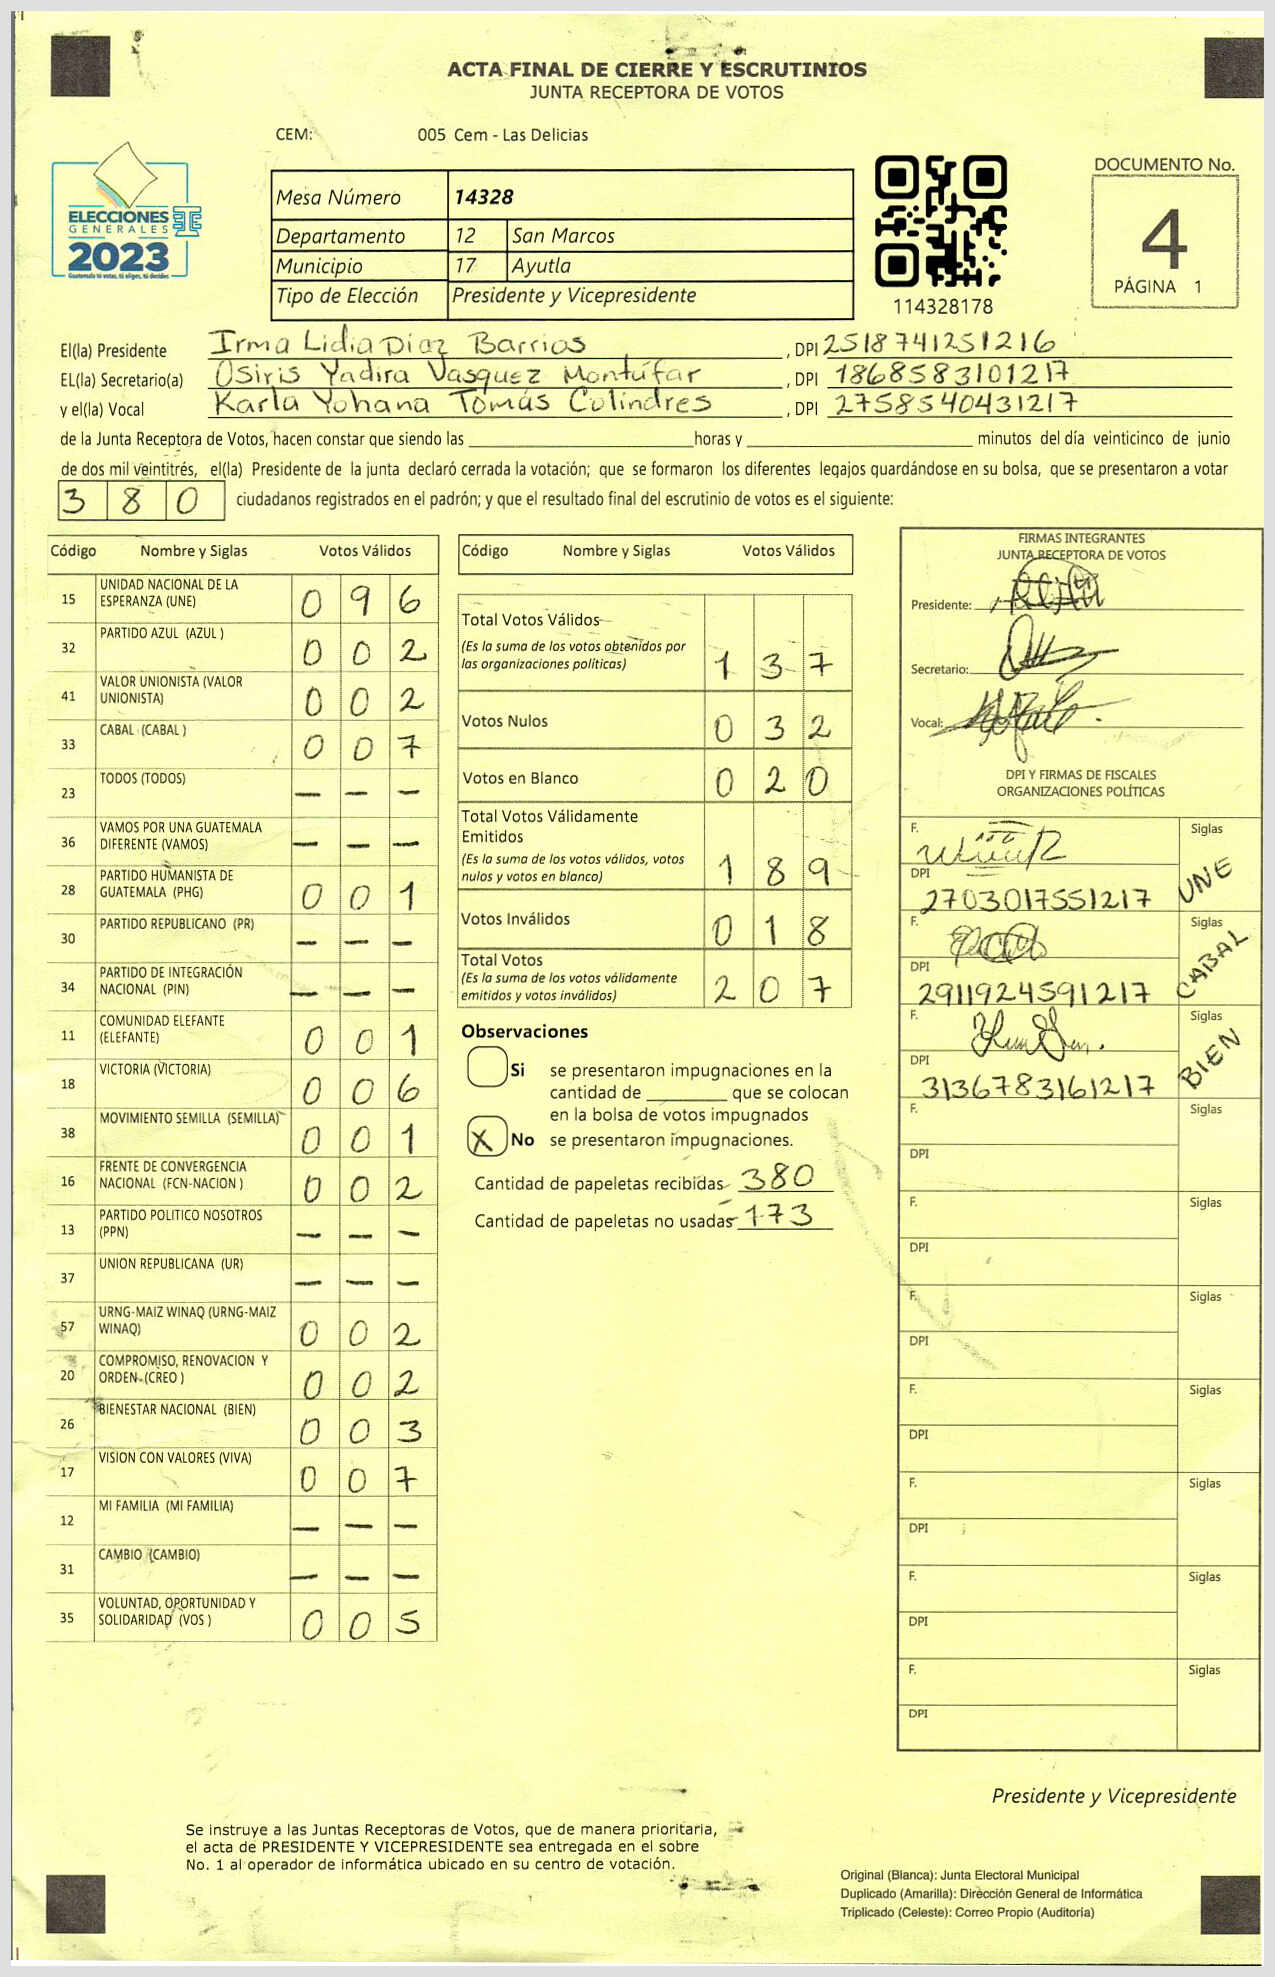 ACTA FINAL DE CIERRE Y ESCRUTINIOS
JUNTA RECEPTORA DE VOTOS
CEM: 005 Cem - Las Delicias
ELECCIONES
GENERALES
2023
Guatemala tú votas, tú eliges, tú decides
Mesa Número 14328
Departamento 12 San Marcos
Municipio 17 Ayutla
Tipo de Elección Presidente y Vicepresidente
114328178
DOCUMENTO No.
4
PÁGINA 1
El(la) Presidente Irma Lidia Díaz Barrios, DPI 2518741251216
EL(la) Secretario(a) Osiris Yadira Vasquez Montúfar, DPI 1868583101217
y el(la) Vocal Karla Yohana Tomás Colindres, DPI 2758540431217
de la Junta Receptora de Votos, hacen constar que siendo las ____ horas y ____ minutos del día veinticinco de junio
de dos mil veintitrés, el(la) Presidente de la junta declaró cerrada la votación; que se formaron los diferentes legajos guardándose en su bolsa, que se presentaron a votar
380 ciudadanos registrados en el padrón; y que el resultado final del escrutinio de votos es el siguiente:
Código Nombre y Siglas Votos Válidos
15 UNIDAD NACIONAL DE LA ESPERANZA (UNE) 0 9 6
32 PARTIDO AZUL (AZUL ) 0 0 2
41 VALOR UNIONISTA (VALOR UNIONISTA) 0 0 2
33 CABAL (CABAL ) 0 0 7
23 TODOS (TODOS) — — —
36 VAMOS POR UNA GUATEMALA DIFERENTE (VAMOS) — — —
28 PARTIDO HUMANISTA DE GUATEMALA (PHG) 0 0 1
30 PARTIDO REPUBLICANO (PR) — — —
34 PARTIDO DE INTEGRACIÓN NACIONAL (PIN) — — —
11 COMUNIDAD ELEFANTE (ELEFANTE) 0 0 1
18 VICTORIA (VICTORIA) 0 0 6
38 MOVIMIENTO SEMILLA (SEMILLA) 0 0 1
16 FRENTE DE CONVERGENCIA NACIONAL (FCN-NACION ) 0 0 2
13 PARTIDO POLITICO NOSOTROS (PPN) — — —
37 UNION REPUBLICANA (UR) — — —
57 URNG-MAIZ WINAQ (URNG-MAIZ WINAQ) 0 0 2
20 COMPROMISO, RENOVACION Y ORDEN (CREO ) 0 0 2
26 BIENESTAR NACIONAL (BIEN) 0 0 3
17 VISION CON VALORES (VIVA) 0 0 7
12 MI FAMILIA (MI FAMILIA) — — —
31 CAMBIO (CAMBIO) — — —
35 VOLUNTAD, OPORTUNIDAD Y SOLIDARIDAD (VOS ) 0 0 5
Código Nombre y Siglas Votos Válidos
Total Votos Válidos
(Es la suma de los votos obtenidos por
las organizaciones políticas) 1 3 7
Votos Nulos 0 3 2
Votos en Blanco 0 2 0
Total Votos Válidamente
Emitidos
(Es la suma de los votos válidos, votos
nulos y votos en blanco) 1 8 9
Votos Inválidos 0 1 8
Total Votos
(Es la suma de los votos válidamente
emitidos y votos inválidos) 2 0 7
Observaciones
Si se presentaron impugnaciones en la
cantidad de ____ que se colocan
en la bolsa de votos impugnados
X No se presentaron impugnaciones.
Cantidad de papeletas recibidas 380
Cantidad de papeletas no usadas 173
FIRMAS INTEGRANTES
JUNTA RECEPTORA DE VOTOS
Presidente:
Secretario:
Vocal:
DPI Y FIRMAS DE FISCALES
ORGANIZACIONES POLÍTICAS
F. Siglas UNE
DPI 2703017551217
F. Siglas CABAL
DPI 2911924591217
F. Siglas BIEN
DPI 3136783161217
F. Siglas
DPI
F. Siglas
DPI
F. Siglas
DPI
F. Siglas
DPI
F. Siglas
DPI
F. Siglas
DPI
F. Siglas
DPI
Presidente y Vicepresidente
Se instruye a las Juntas Receptoras de Votos, que de manera prioritaria,
el acta de PRESIDENTE Y VICEPRESIDENTE sea entregada en el sobre
No. 1 al operador de informática ubicado en su centro de votación.
Original (Blanca): Junta Electoral Municipal
Duplicado (Amarilla): Dirección General de Informática
Triplicado (Celeste): Correo Propio (Auditoría)